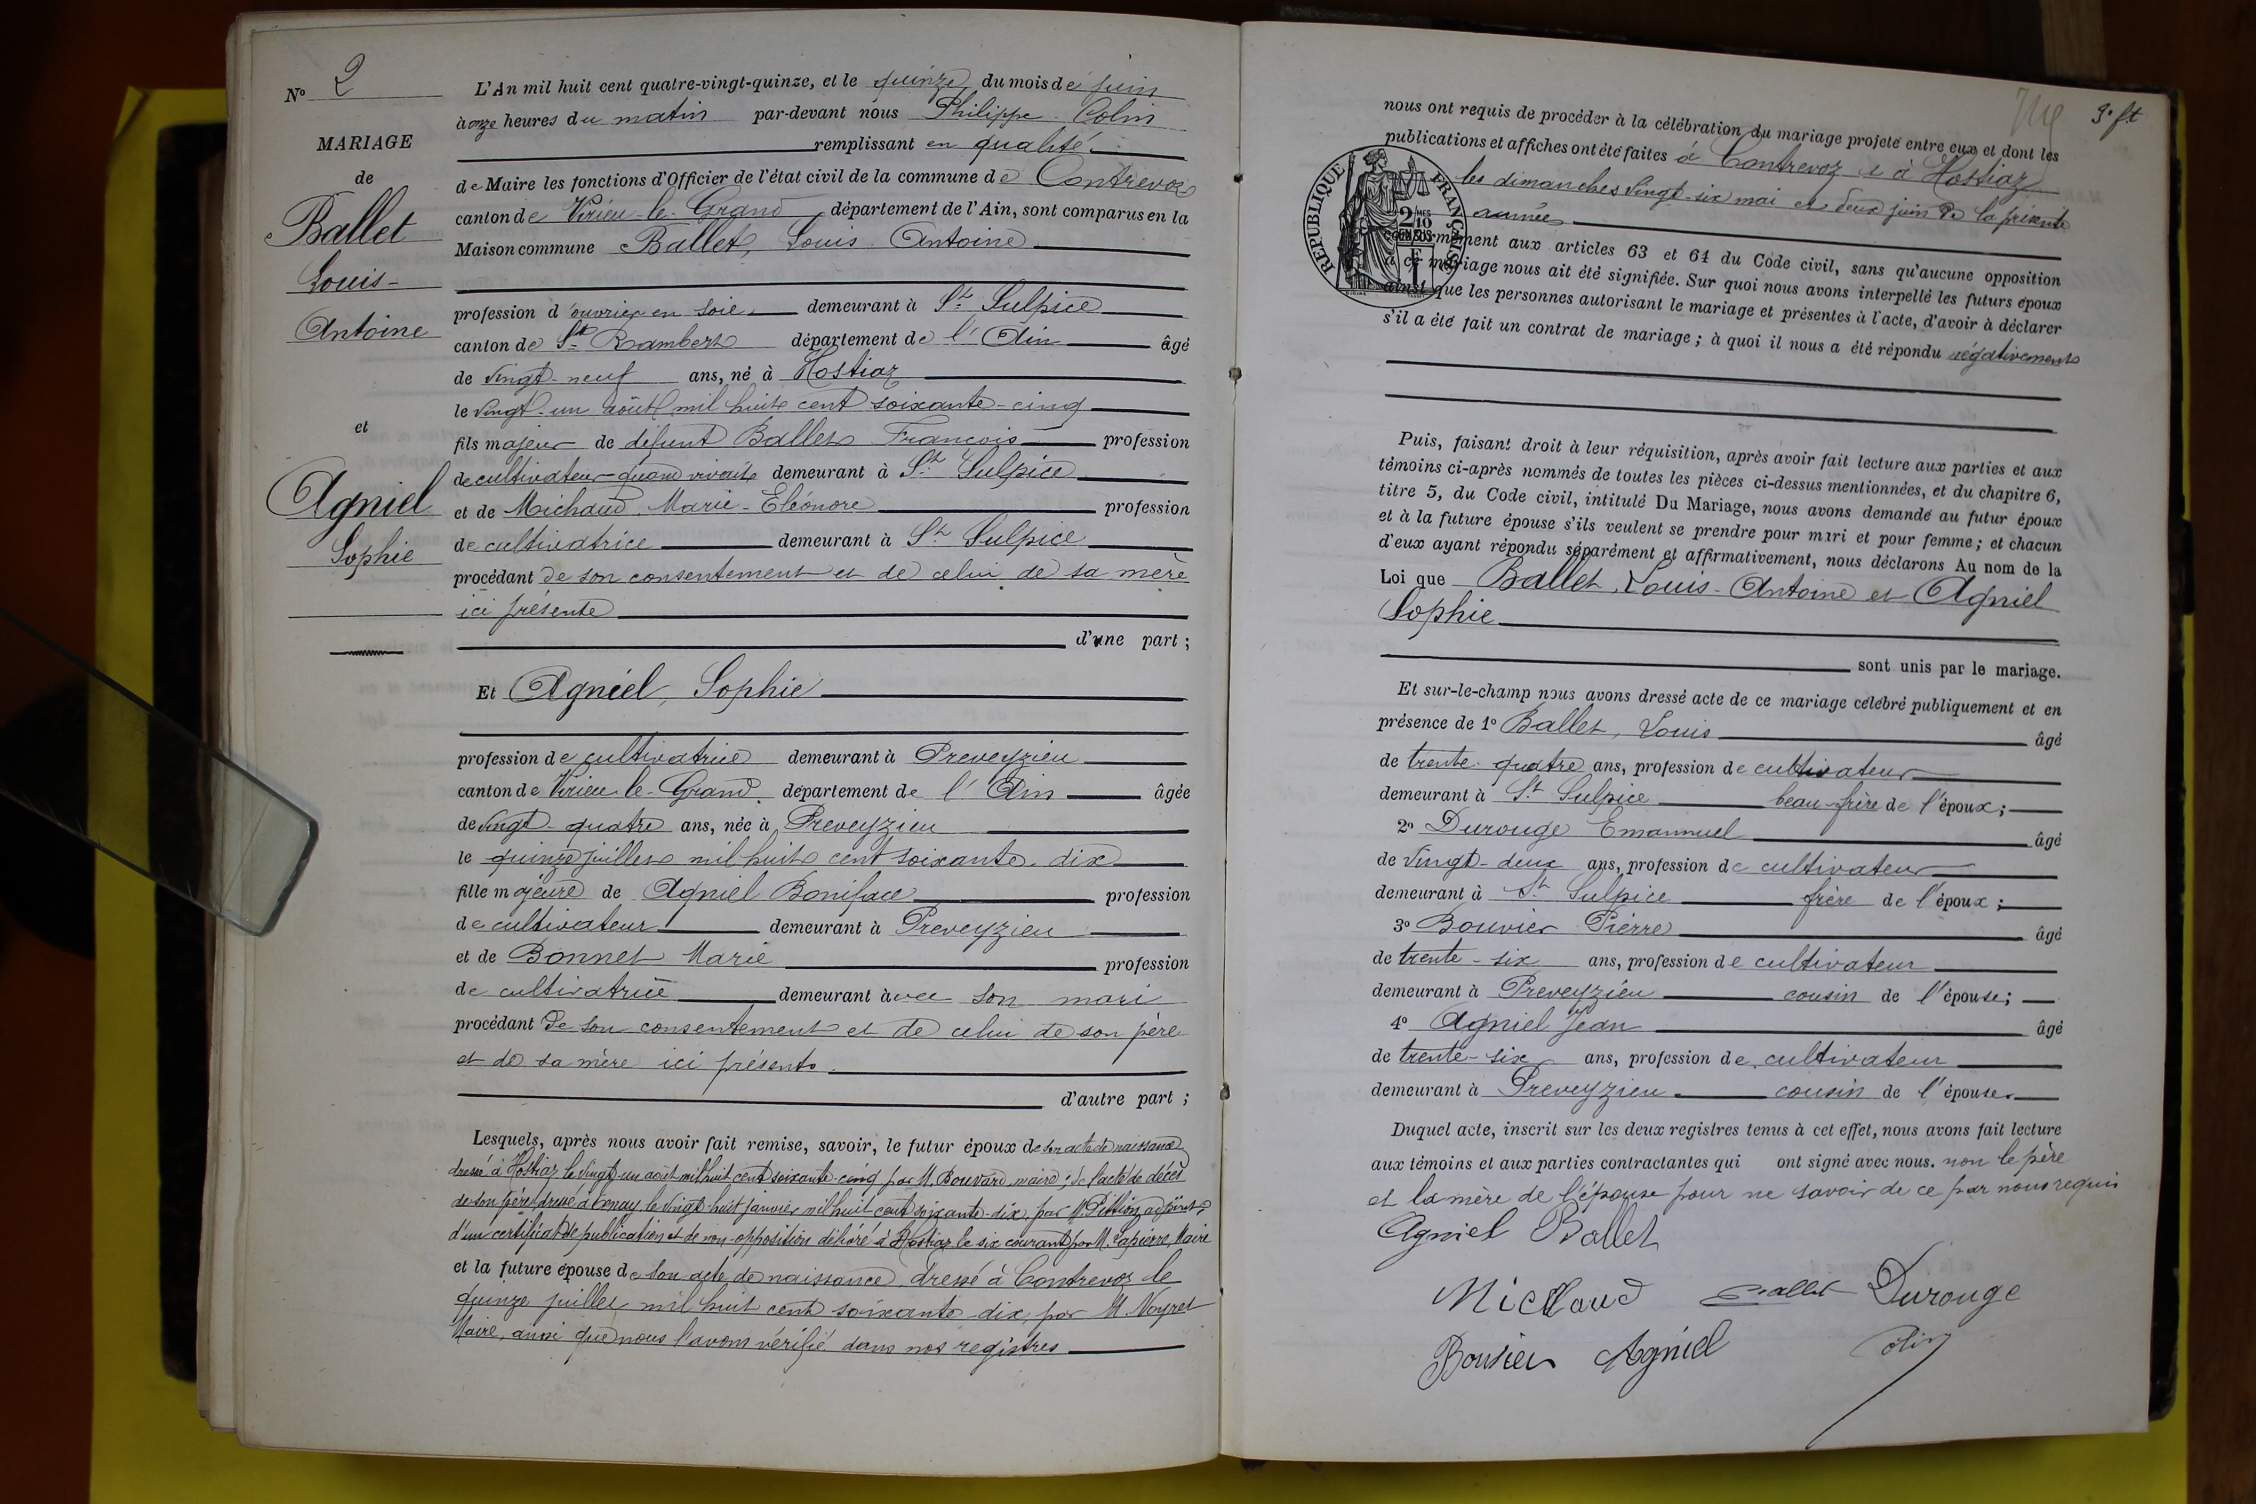 N° 2
MARIAGE
de
Ballet
Louis-
Antoine
et
Agniel
Sophie
L'An mil huit cent quatre-vingt-quinze, et le quinze du mois de juin
à onze heures du matin par-devant nous Philippe Colin
remplissant en qualité
de Maire les fonctions d'Officier de l'état civil de la commune de Contrevoz
canton de Virieu-le-Grand, département de l'Ain, sont comparus en la
Maison commune Ballet, Louis Antoine
profession d'ouvrier en soie demeurant à St Sulpice
canton de St Rambert département de l'Ain âgé
de vingt-neuf ans, né à Hostiaz
le vingt-un août mil huit cent soixante-cinq
fils majeur de défunt Ballet François profession
de cultivateur quand vivait demeurant à St Sulpice
et de Michaud Marie-Eléonore profession
de cultivatrice demeurant à St Sulpice
procédant de son consentement et de celui de sa mère
ici présente
d'une part ;
Et Agniel, Sophie
profession de cultivatrice demeurant à Preveyzieu
canton de Virieu-le-Grand, département de l'Ain âgée
de vingt-quatre ans, née à Preveyzieu
le quinze juillet mil huit cent soixante-dix
fille majeure de Agniel Boniface profession
de cultivateur demeurant à Preveyzieu
et de Bonnet Marie profession
de cultivatrice demeurant avec son mari
procédant de son consentement et de celui de son père
et de sa mère ici présents
d'autre part ;
Lesquels, après nous avoir fait remise, savoir, le futur époux de son acte de naissance
dressé à Hostiaz le vingt-un août mil huit cent soixante-cinq par M. Bouvard, maire ; de l'acte de décès
de son père dressé à le vingt-huit janvier mil huit cent soixante-dix, par M. adjoint ;
d'un certificat de publication et de non-opposition délivré à Hostiaz le six courant par M. Lapierre, Maire
et la future épouse de son acte de naissance dressé à Contrevoz le
quinze juillet mil huit cent soixante-dix, par M. Voyret
Maire, ainsi que nous l'avons vérifié dans nos registres
3e ft
nous ont requis de procéder à la célébration du mariage projeté entre eux et dont les
publications et affiches ont été faites à Contrevoz et à Hostiaz
les dimanches vingt-six mai et deux juin de la présente
année
RÉPUBLIQUE FRANÇAISE
conformément aux articles 63 et 64 du Code civil, sans qu'aucune opposition
à ce mariage nous ait été signifiée. Sur quoi nous avons interpellé les futurs époux
ainsi que les personnes autorisant le mariage et présentes à l'acte, d'avoir à déclarer
s'il a été fait un contrat de mariage ; à quoi il nous a été répondu négativement
Puis, faisant droit à leur réquisition, après avoir fait lecture aux parties et aux
témoins ci-après nommés de toutes les pièces ci-dessus mentionnées, et du chapitre 6,
titre 5, du Code civil, intitulé Du Mariage, nous avons demandé au futur époux
et à la future épouse s'ils veulent se prendre pour mari et pour femme ; et chacun
d'eux ayant répondu séparément et affirmativement, nous déclarons Au nom de la
Loi que Ballet, Louis-Antoine et Agniel
Sophie
sont unis par le mariage.
Et sur-le-champ nous avons dressé acte de ce mariage célébré publiquement et en
présence de 1° Ballet, Louis âgé
de trente-quatre ans, profession de cultivateur
demeurant à St Sulpice beau-frère de l'époux ;
2° Durouge Emannuel âgé
de vingt-deux ans, profession de cultivateur
demeurant à St Sulpice frère de l'époux ;
3° Bouvier Pierre âgé
de trente-six ans, profession de cultivateur
demeurant à Preveyzieu cousin de l'épouse ;
4° Agniel Jean âgé
de trente-six ans, profession de cultivateur
demeurant à Preveyzieu cousin de l'épouse
Duquel acte, inscrit sur les deux registres tenus à cet effet, nous avons fait lecture
aux témoins et aux parties contractantes qui ont signé avec nous. non le père
et la mère de l'épouse pour ne savoir de ce par nous requis
Agniel Ballet
Michaud Ballet Durouge
Bouvier Agniel Colin